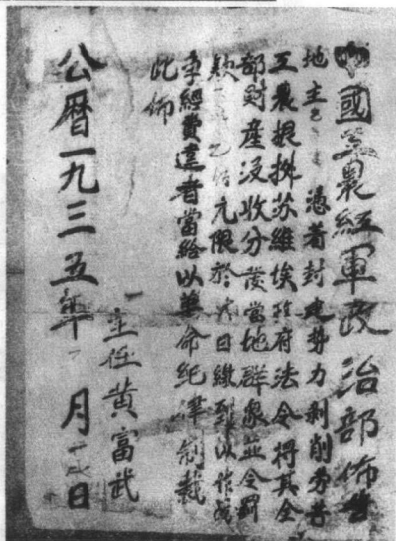 中國工農紅軍政治部佈告
地主 憑着封建势力剥削劳苦
工農根拠苏維埃政府法令将其全
部財産没收分發當地群衆並令罰
款 元限於 日繳到以作战
争經費違者當給以革命紀律制裁
此佈
主任黄富武
公曆一九三五年 月 日